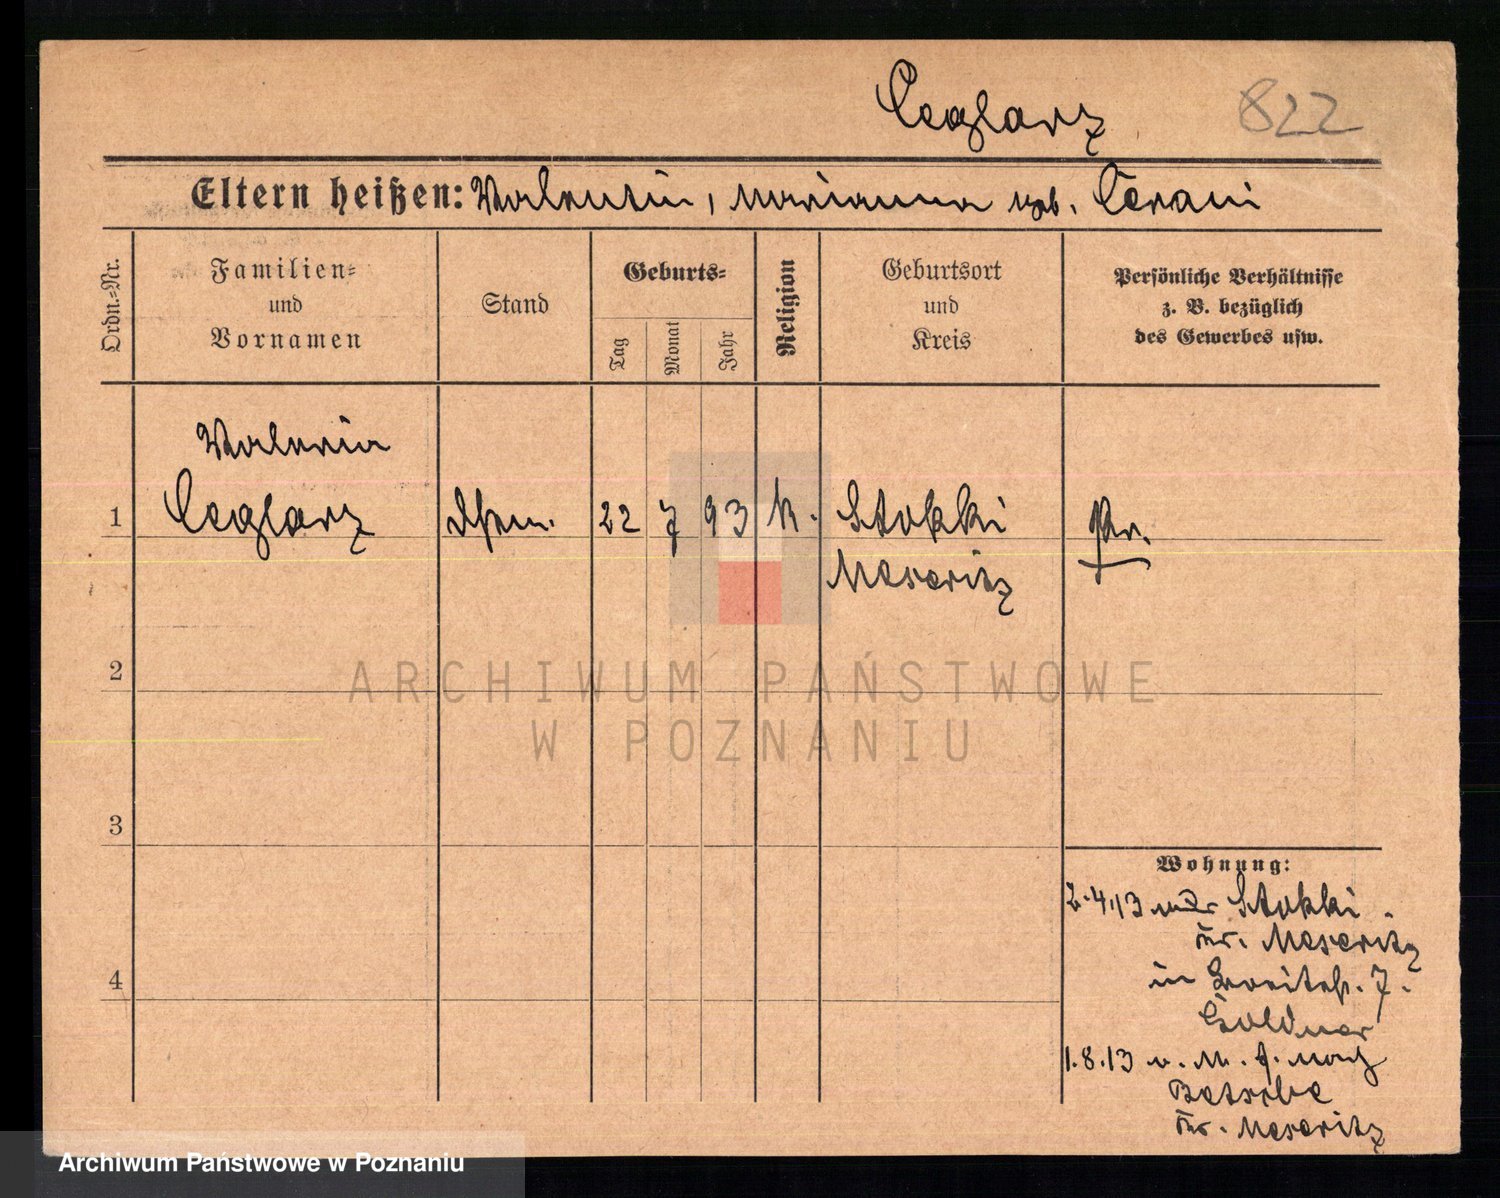 Ceglarz 822
Eltern heißen: Valentin, Marianna geb. Cerani
Ordn.=Nr.
Familien=
und
Vornamen
Stand
Geburts=
Tag
Monat
Jahr
Religion
Geburtsort
und
Kreis
Persönliche Verhältnisse
z. B. bezüglich
des Gewerbes usw.
Valeria
1 Ceglarz 22 7 93 k. Stokki Pr.
Meseritz
2
3
4
Wohnung:
2.4.13 Stokki
Kr. Meseritz
in Breitestr. 7.
Goldner
1.8.13 v. M. f. nach
Betsche
Kr. Meseritz
ARCHIWUM PAŃSTWOWE
W POZNANIU
Archiwum Państwowe w Poznaniu